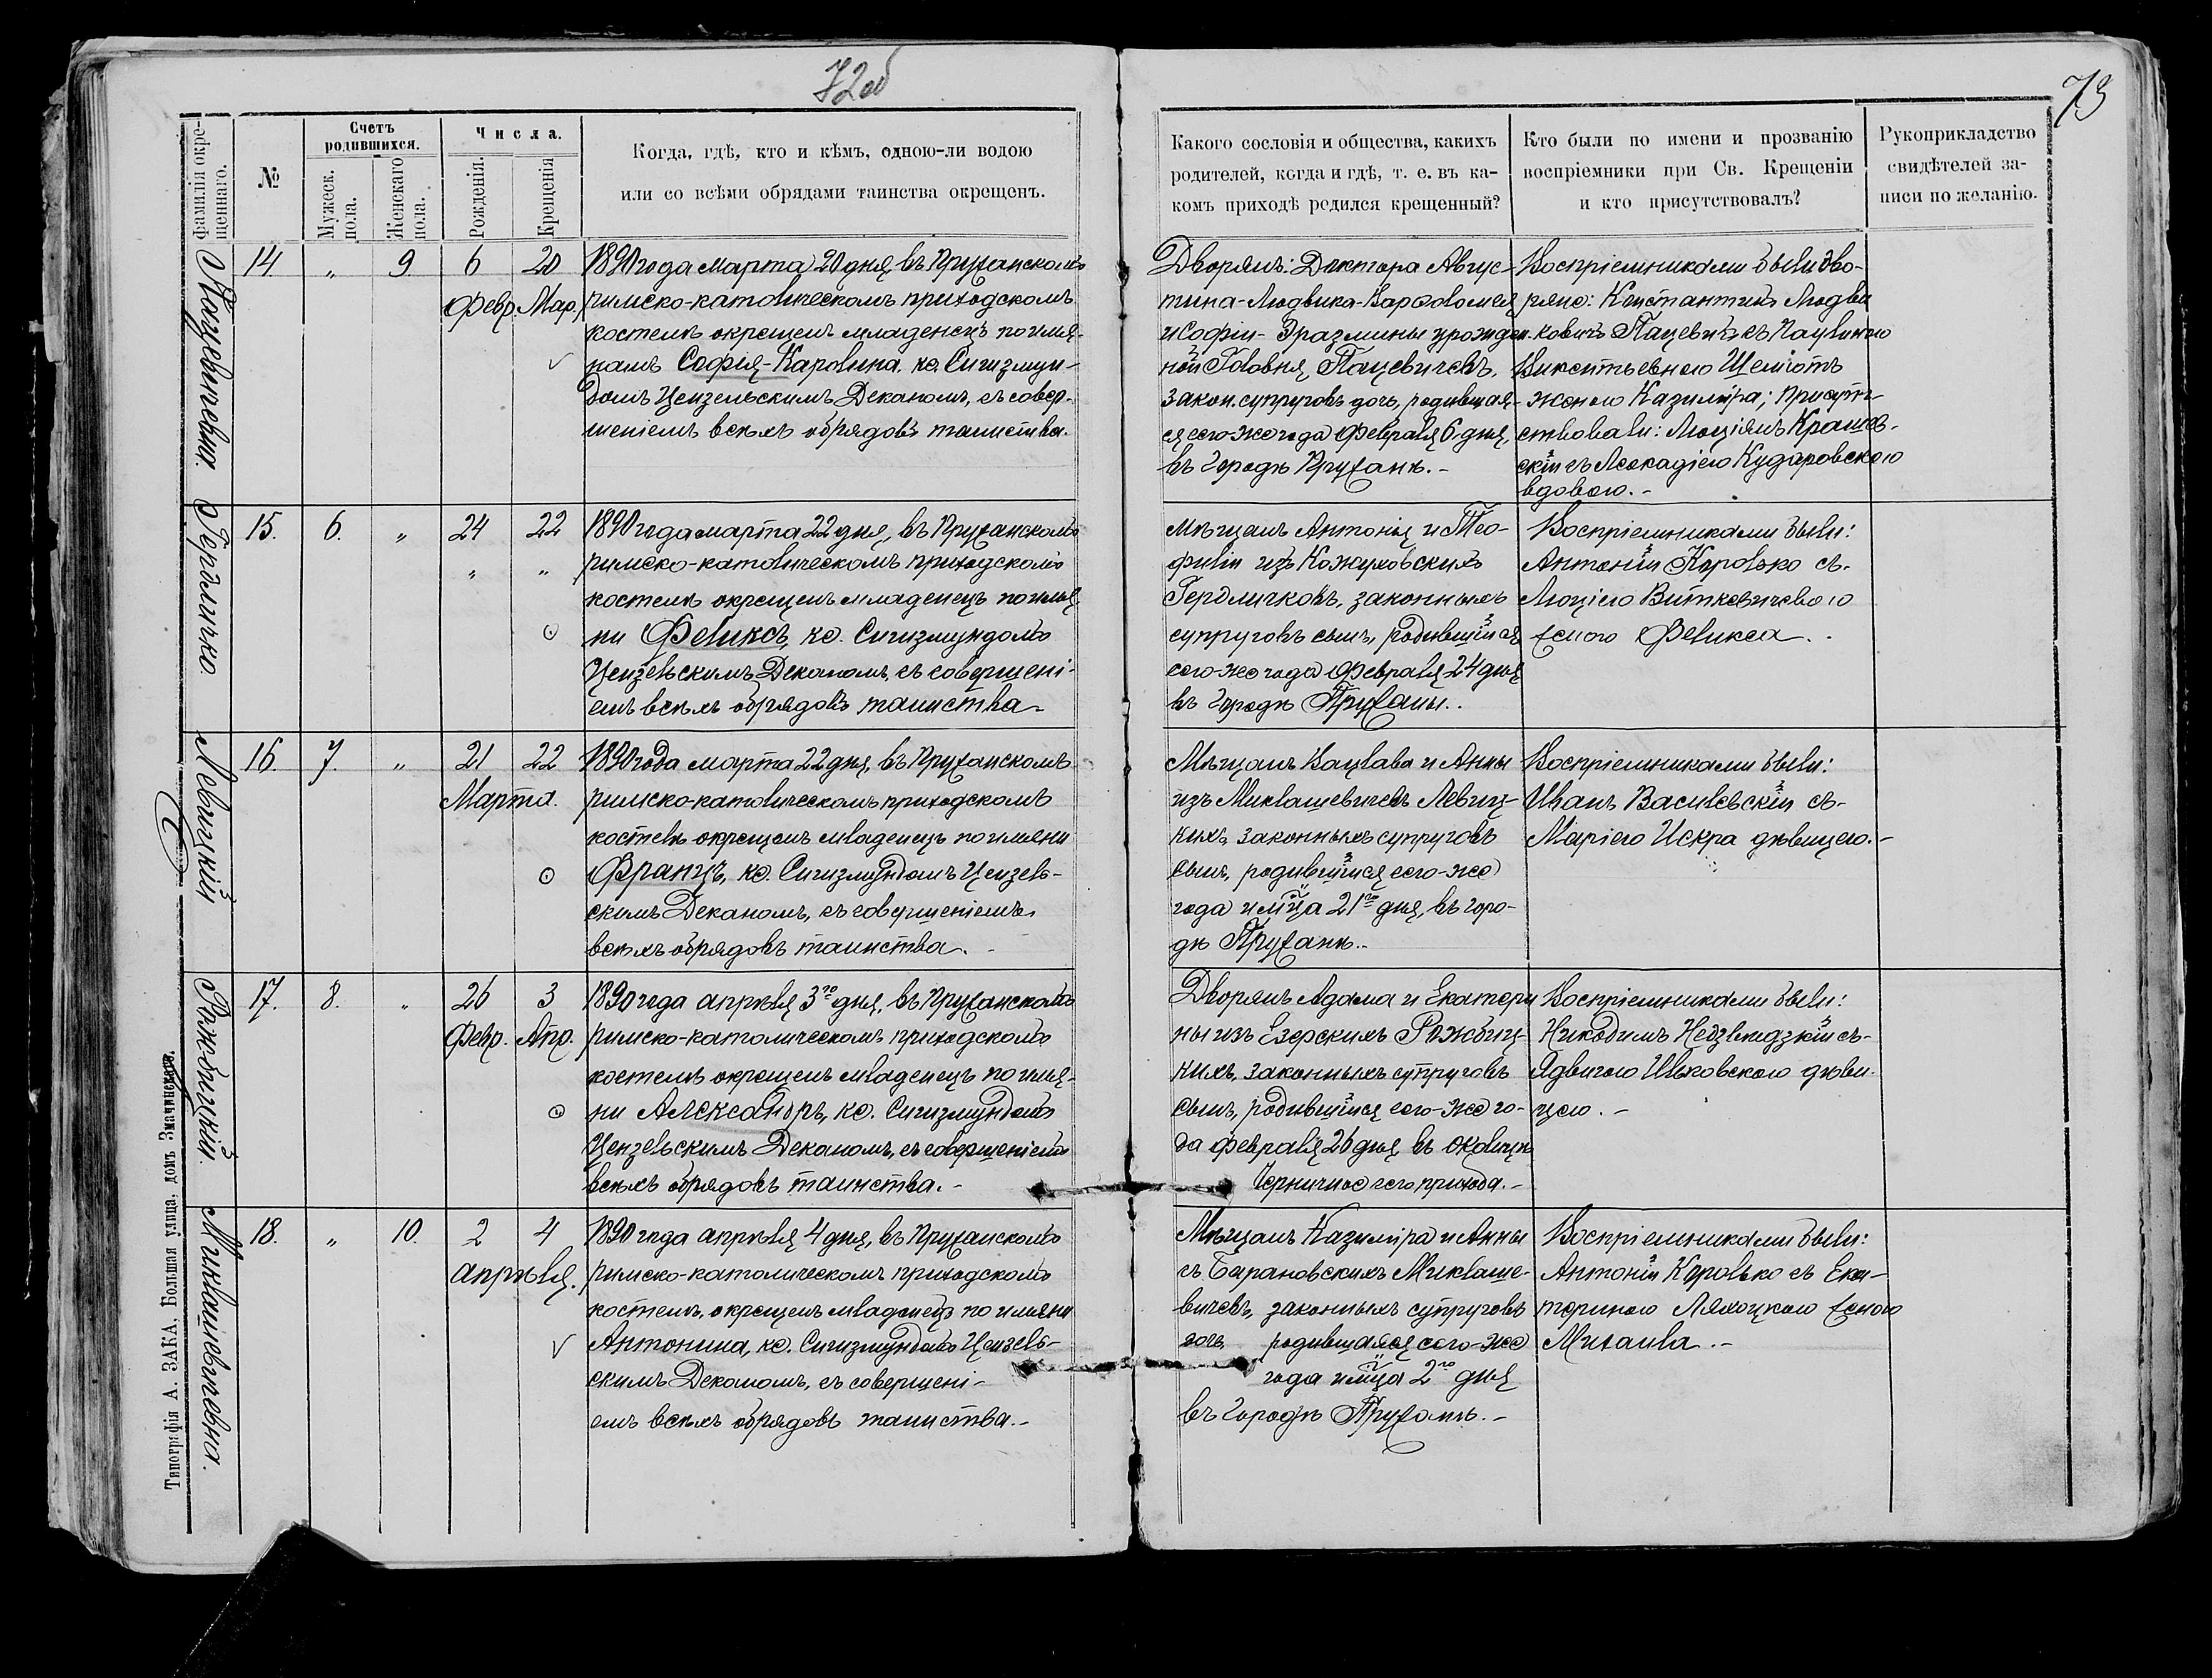 72об
73
Фамилія окре-
щеннаго.
№
Счетъ
родившихся.
Мужеск.
пола.
Женскаго
пола.
Числа.
Рожденія.
Крещенія
Когда, гдѣ, кто и кѣмъ, одною-ли водою
или со всѣми обрядами таинства окрещенъ.
Какого сословія и общества, какихъ
родителей, когда и гдѣ, т. е. въ ка-
комъ приходѣ родился крещенный?
Кто были по имени и прозванію
воспріемники при Св. Крещеніи
и кто присутствовалъ?
Рукоприкладство
свидѣтелей за-
писи по желанію.
Пацевичевна.
14
"
9
6
20
Февр. Мар.
1890 года марта 20 дня, въ Пружанскомъ
римско-католическомъ приходскомъ
костелѣ окрещенъ младенецъ по имя-
намъ Софія-Каролина, кс. Сигизмун-
домъ Цензельскимъ Деканомъ, съ совер-
шеніемъ всѣхъ обрядовъ таинства.
Дворянъ: Доктора Авгус-
тина-Людвика-Варфоломея
и Софіи-Эразмины урожден-
ной Головня Пацевичевъ,
закон. супруговъ дочь, родившая-
ся сего-же года Февраля 6 дня,
въ городѣ Пружанѣ.-
Воспріемниками были дво-
ряне: Константинъ Людви-
ковичъ Пацевичъ съ Паулиною
Викентьевною Щеніотъ
женою Казиміра; присут-
ствовали: Люціянъ Крашев-
скій съ Леокадіею Кударовскою
вдовою.-
15.
6.
"
24
22
"
"
1890 года марта 22 дня, въ Пружанскомъ
римско-католическомъ приходскомъ
костелѣ окрещенъ младенецъ по имя-
ни Феликсъ, кс. Сигизмундомъ
Цензельскимъ Деканомъ, съ совершені-
емъ всѣхъ обрядовъ таинства.
Мѣщанъ Антонія и Тео-
филіи изъ Кожуховскихъ
законныхъ
супруговъ сынъ, родившійся
сего-же года Февраля 24 дня
въ городѣ Пружаны..
Воспріемниками были:
Антоній Королько съ-
Люціею Виткевичевою
женою Феликса..
Левицкій
16.
7.
"
21
22
Марта.
1890 года марта 22 дня, въ Пружанскомъ
римско-католическомъ приходскомъ
костелѣ окрещенъ младенецъ по имяни
Францъ, кс. Сигизмундомъ Цензель-
скимъ Деканомъ, съ совершеніемъ
всѣхъ обрядовъ таинства.-
Мѣщанъ Вацлава и Анны
изъ Миклашевичевъ Левиц-
кихъ, законныхъ супруговъ
сынъ, родившійся сего-же
года и м̃ца 21го дня, въ горо-
дѣ Пружанѣ..
Воспріемниками были:
Иванъ Василевскій съ-
Маріею Искра дѣвицею.-
Рожбицкій.
17.
8.
"
26
3
Февр. Апр.
1890 года апрѣля 3го дня, въ Пружанскомъ
римско-католическомъ приходскомъ
костелѣ окрещенъ младенецъ по имя-
ни Александръ, кс. Сигизмундомъ
Цензельскимъ Деканомъ, съ совершеніемъ
всѣхъ обрядовъ таинства.-
Дворянъ Адама и Екатери
ны изъ Езерскихъ Рожбиц-
кихъ, законныхъ супруговъ
сынъ, родившійся сего-же го-
да февраля 26 дня въ околицѣ
Черничное сего прихода.-
Воспріемниками были:
Никодимъ Недзвѣдзкій съ-
Ядвигою Ильковскою дѣви-
цею.-
Миклашевичевна.
18.
"
10.
2
4
Апрѣля.
1890 года апрѣля 4 дня, въ Пружанскомъ
римско-католическомъ приходскомъ
костелѣ, окрещенъ младенецъ по имяни
Антонина, кс. Сигизмундомъ Цензель-
скимъ Деканомъ, съ совершені-
емъ всѣхъ обрядовъ таинства.-
Мѣщанъ Казиміра и Анны
съ Барановскихъ Миклаше-
вичевъ, законныхъ супруговъ
дочь, родившаяся сего-же
года и м̃ца 2го дня
въ городѣ Пружанѣ.-
Воспріемниками были:
Антоній Королько съ Ека-
териною Ляхоцкою женою
Михаила.-
Типографія А. ЗАКА, Большая улица, домъ